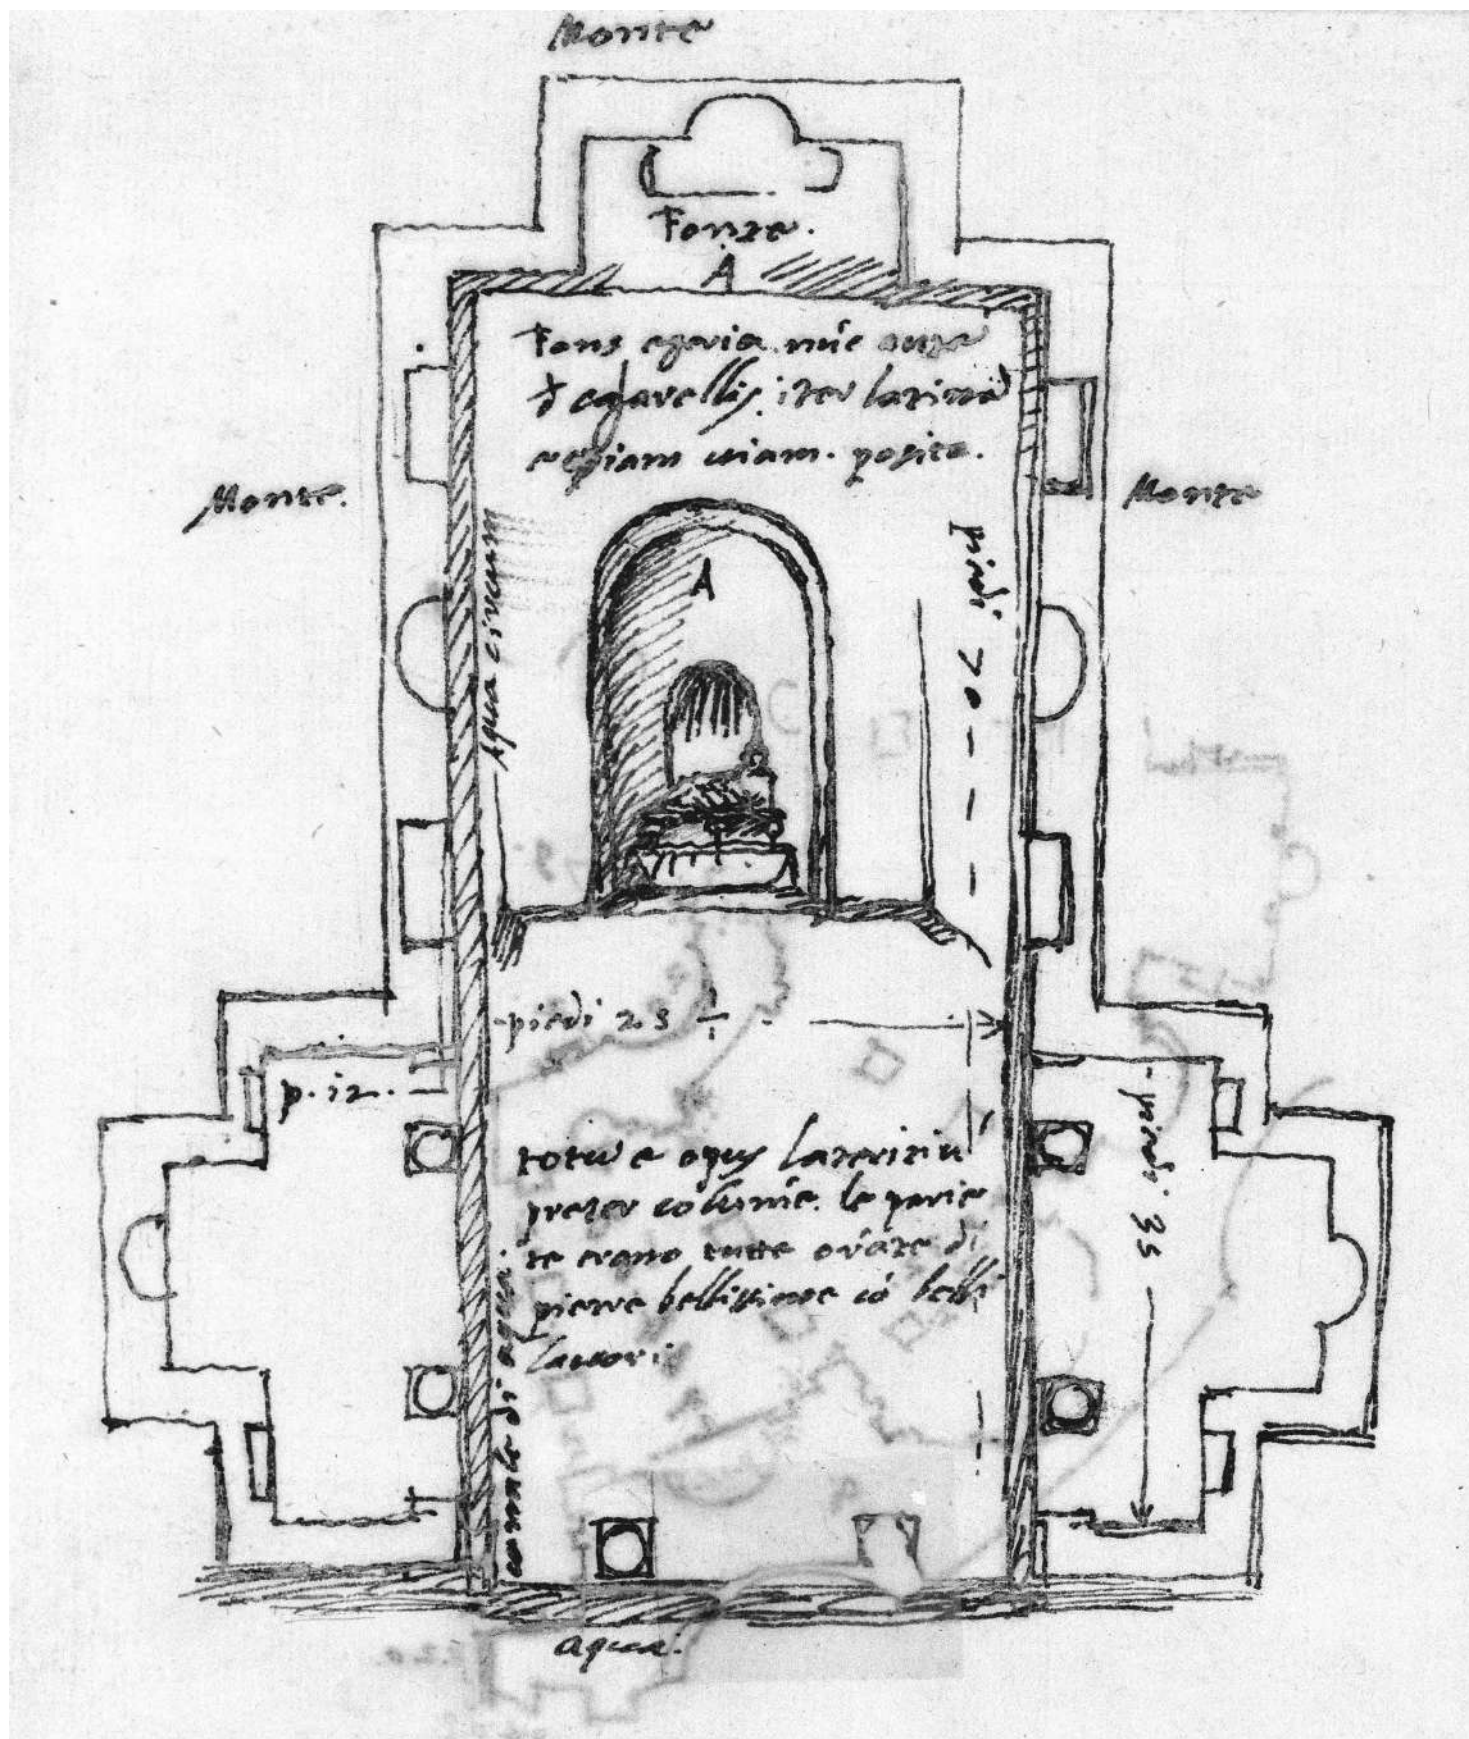 Monte
Fonte.
A
Fons egeria nūc
iter latinā
appiam viam. posite.
Monte.
Monte
A
Aqua circum
piedi 70
piedi 23
p. 12.
piedi 35
totū e opus lateritiū
preter colūnie. le parie
te erano tutte ornate di
pierre bellissime cō belli
lavori
canale di aqua
aqua.